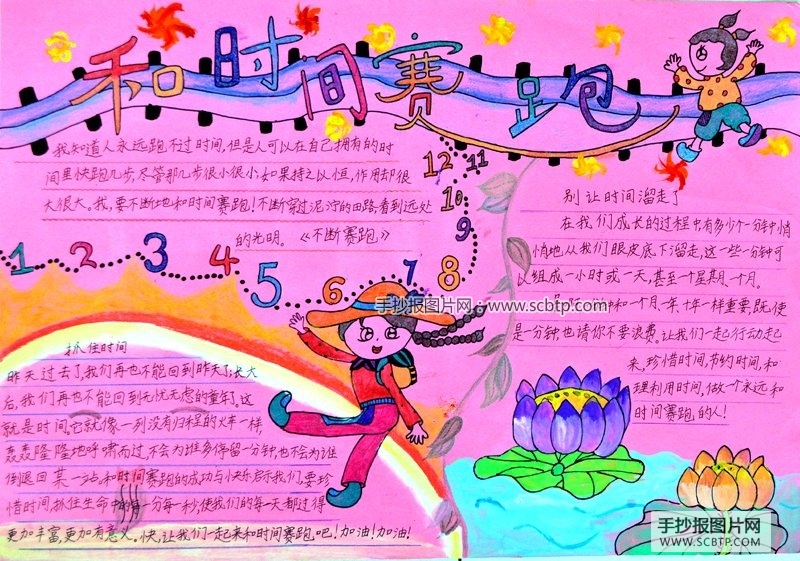 手抄报图片网
WWW.SCBTP.COM
和时间赛跑
我知道人永远跑不过时间,但是人可以在自己拥有的时
间里快跑几步,尽管那几步很小很小,如果持之以恒,作用却很
大很大。我,要不断地和时间赛跑!不断穿过泥泞的田路,看到远处
的光明。《不断赛跑》
1 2 3 4 5 6 7 8 9 10 11 12
手抄报图片网:www.scbtp.com
抓住时间
昨天过去了,我们再也不能回到昨天了;长大
后,我们再也不能回到无忧无虑的童年了。这
就是时间,它就像一列没有归程的火车一样
轰轰隆隆地呼啸而过,不会为谁多停留一分钟,也不会为谁
倒退回某一站,和时间赛跑的成功与快乐启示我们,要珍
惜时间,抓住生命中的每一分每一秒,使我们的每一天都过得
更加丰富,更加有意义。快,让我们一起来和时间赛跑吧!加油!加油!
别让时间溜走了
在我们成长的过程中有多少个一分钟悄
悄地从我们眼皮底下溜走,这一些一分钟可
以组成一小时或一天,甚至一个星期、一个月。
和一个月、一年、十年一样重要,既使
是一分钟,也请你不要浪费。让我们一起行动起
来,珍惜时间,节约时间,和
理利用时间,做一个永远和
时间赛跑的人!
手抄报图片网
WWW.SCBTP.COM